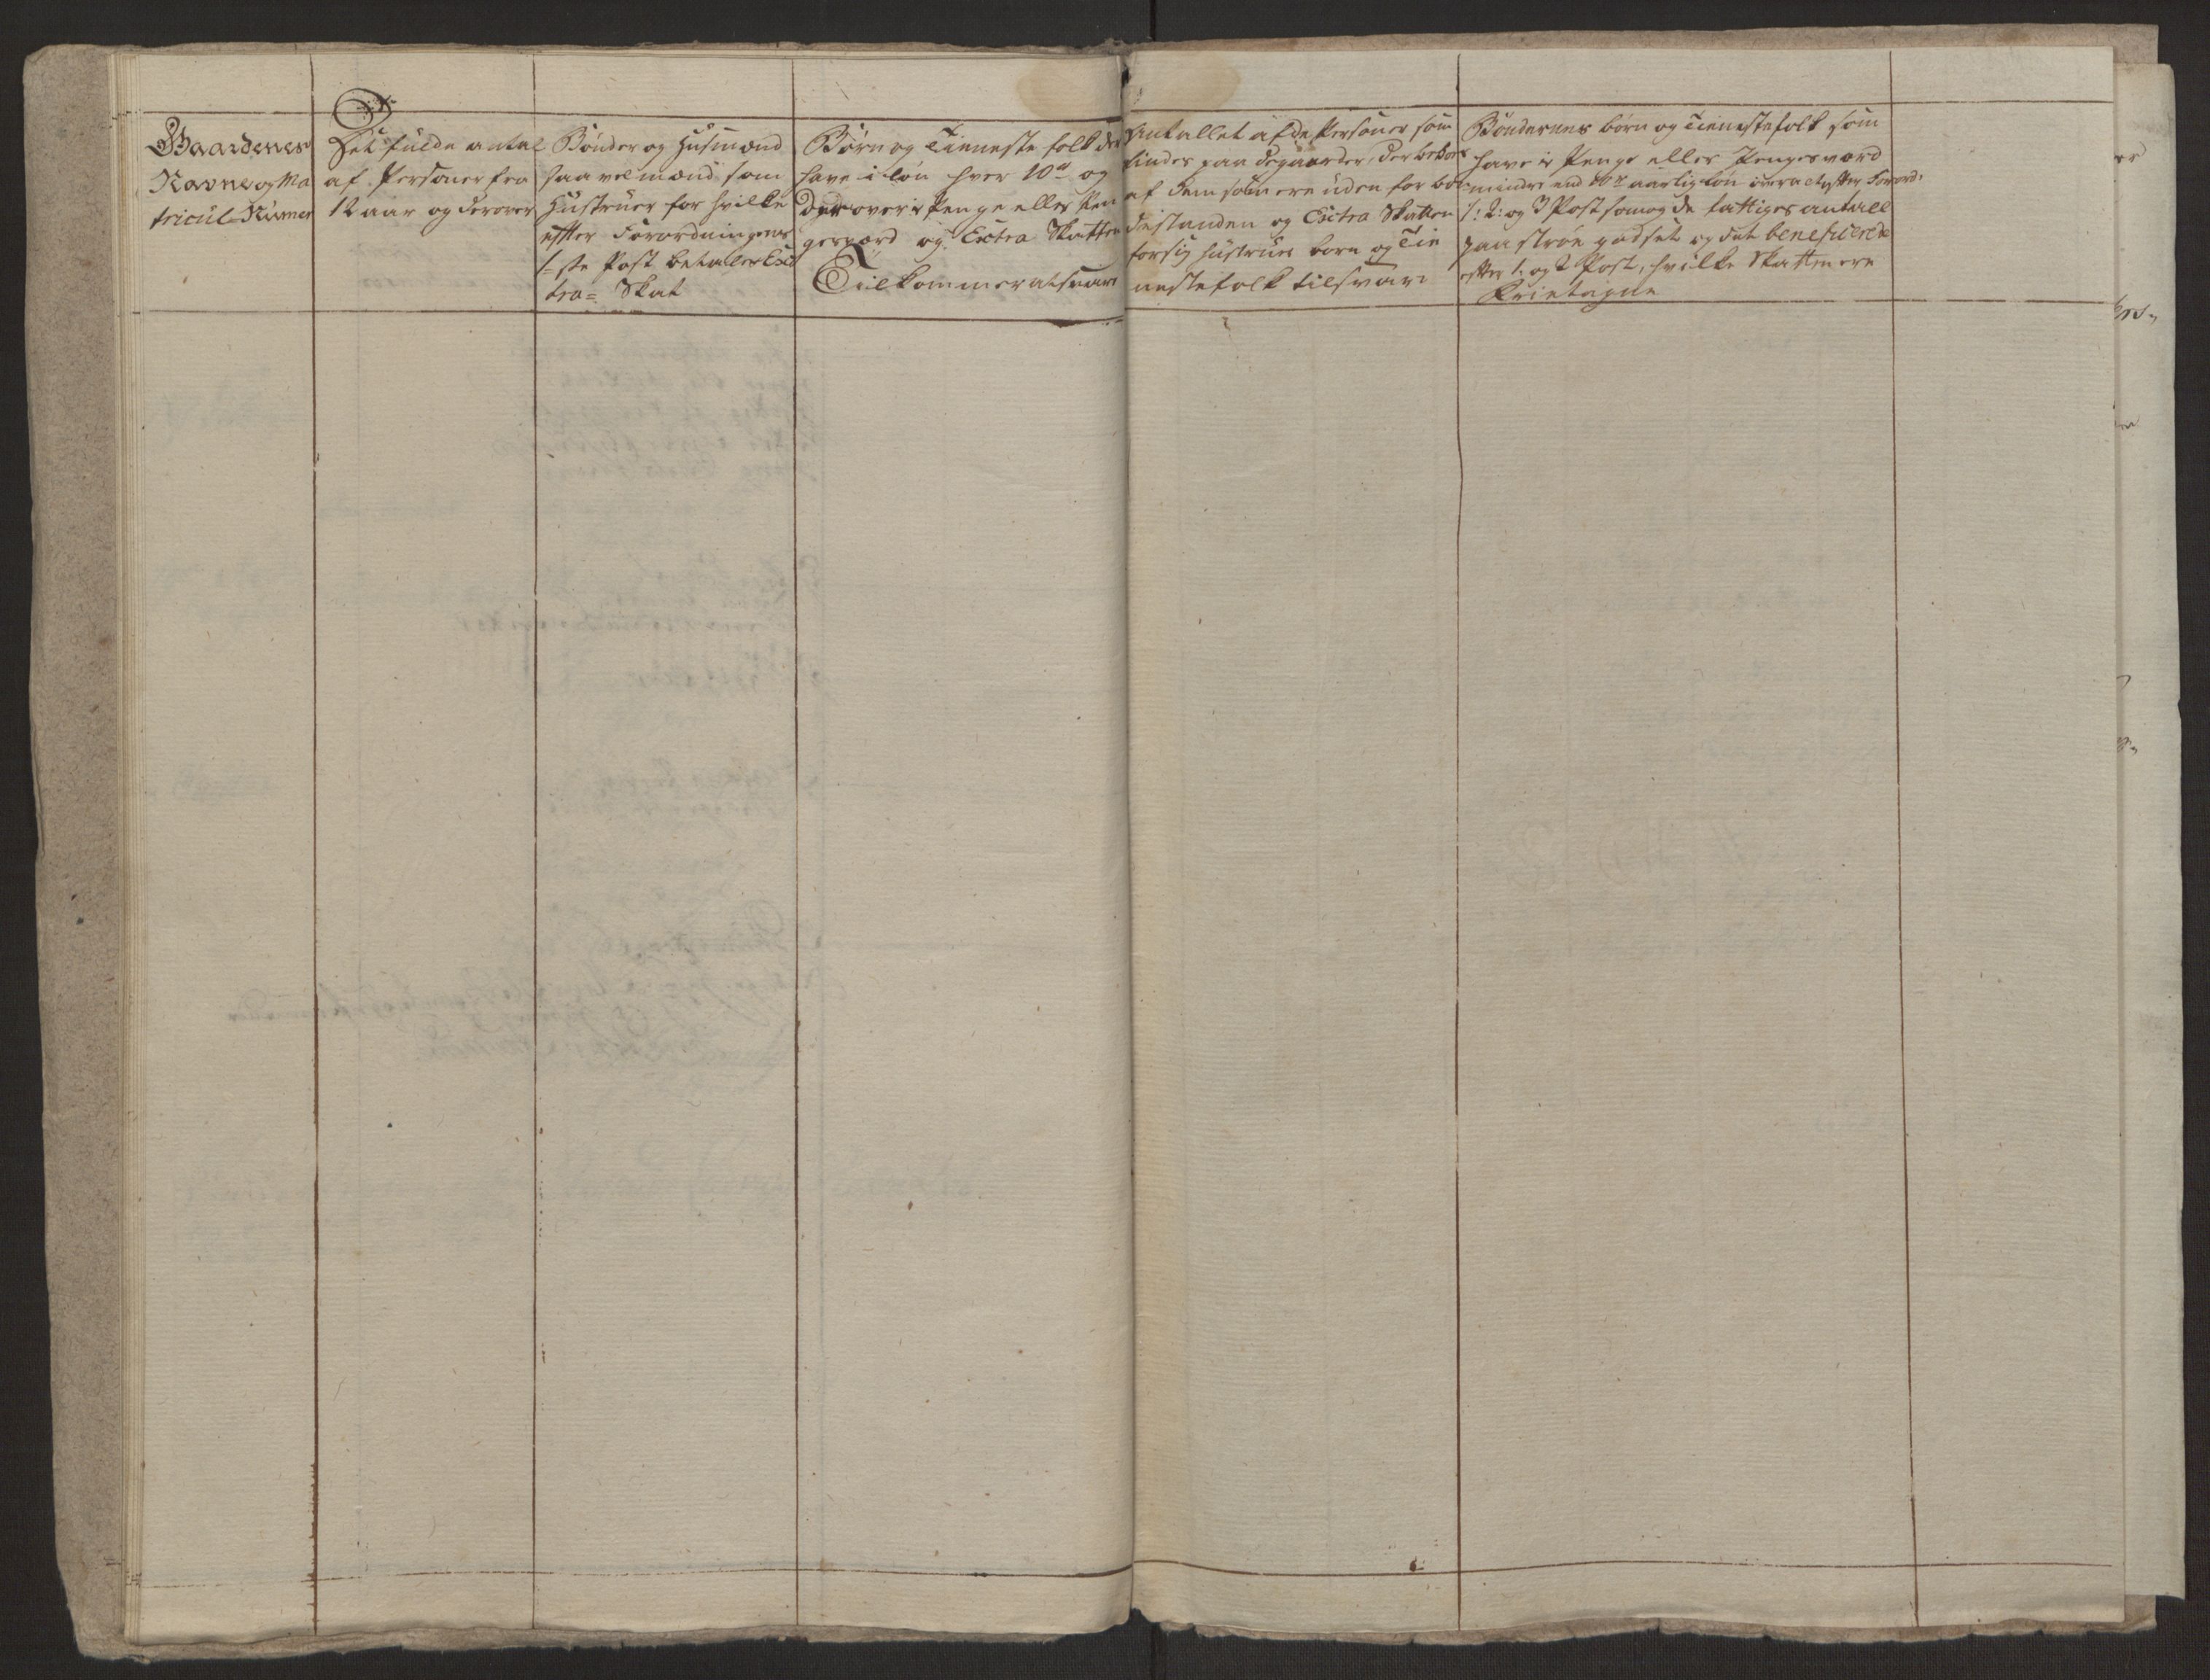 Gaardenes
Navne og Ma
tricul-Numer
Det fulde antal
af Personer fra
12 aar og derover
Bønder og Husmænd
saavel mænd som
Hustruer for hvilke
effter Forordningens
1ste Post betales Ex
tra= Skat
Børn og Tienneste folk der
have i løn hver 10 rd og
derover i Penge eller Pen
gerværd og Extra Skatten
Tilkommer at svare
Antallet af de Personer som
findes paa de gaarder, der beboes
af dem som ere uden for bon
destanden og Extra Skatten
for sig hustruer born og Tie
nestefolk tilsvare
Bøndernes børn og Tienestefolk som
have i Penge eller Penges værd
mindre end 10 rd aarlig løn effter Forord:
1: 2: og 3 Post som og de fattiges antall
paa strøe godset og det beneficerede
efter 1. og 2 Post, hvilke Skatten ere
frietagne